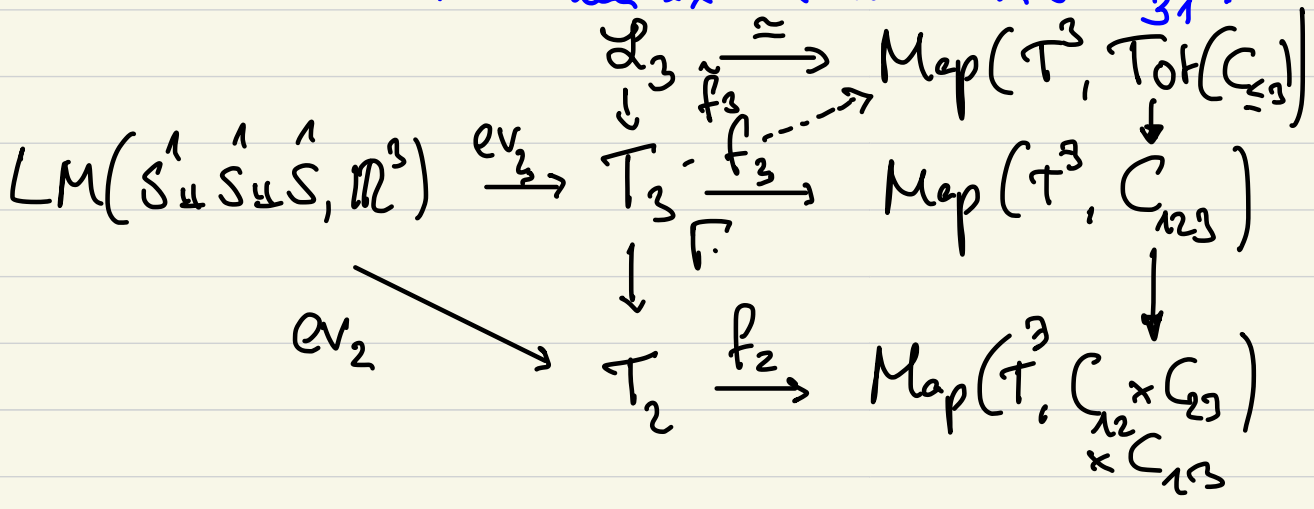 ℒ₃ ≃⟶ Map(T³, Tot(C_{≤3}))
↓ f̃₃ ⇢ ↓
LM(S¹⊔S¹⊔S¹, ℝ³) ev₃⟶ T₃ f₃⟶ Map(T³, C₁₂₃)
↓ Γ. ↓
ev₂ ↘ T₂ f₂⟶ Map(T³, C₁₂×C₂₃
×C₁₃)